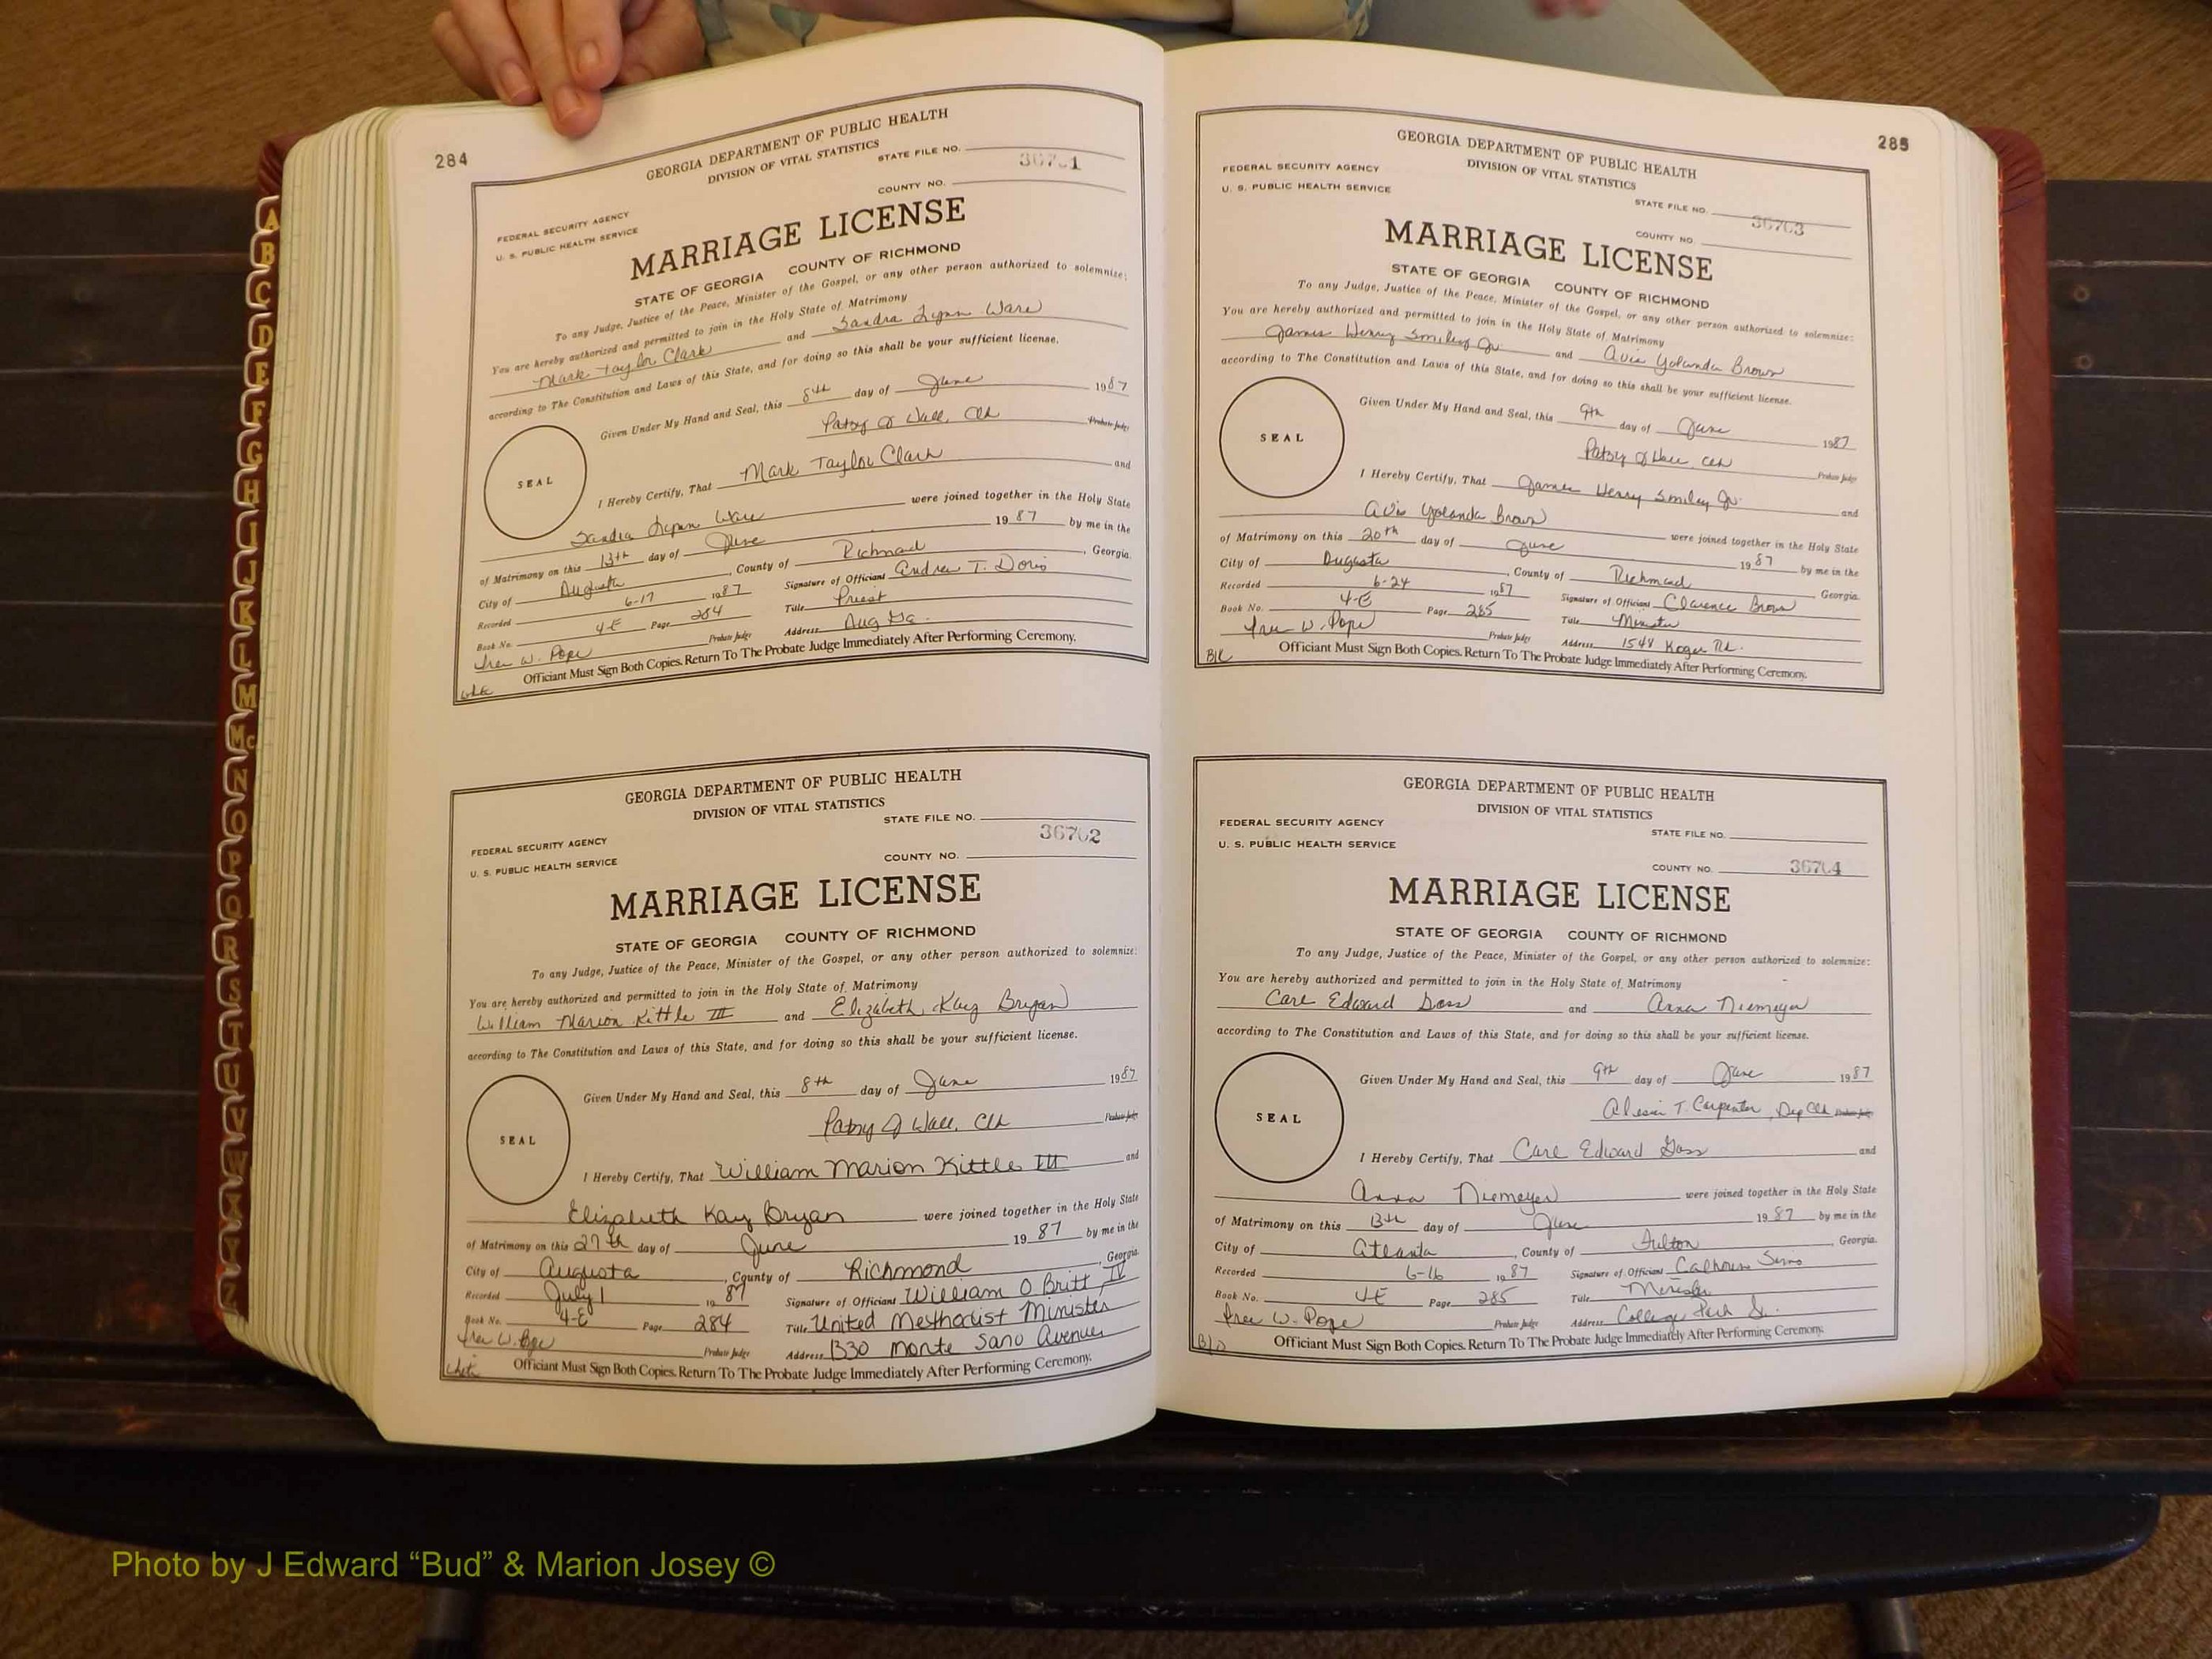 284
GEORGIA DEPARTMENT OF PUBLIC HEALTH
DIVISION OF VITAL STATISTICS
STATE FILE NO.
COUNTY NO.
FEDERAL SECURITY AGENCY
U. S. PUBLIC HEALTH SERVICE
MARRIAGE LICENSE
STATE OF GEORGIA COUNTY OF RICHMOND
To any Judge, Justice of the Peace, Minister of the Gospel, or any other person authorized to solemnize:
You are hereby authorized and permitted to join in the Holy State of Matrimony
Mark Taylor Clark and Sandra Lynn Ware
according to The Constitution and Laws of this State, and for doing so this shall be your sufficient license.
Given Under My Hand and Seal, this 8th day of June 1987
Patsy J Wall, Clk Probate Judge
SEAL
I Hereby Certify, That Mark Taylor Clark and
Sandra Lynn Ware were joined together in the Holy State
of Matrimony on this 13th day of June 19 87 by me in the
City of Augusta, County of Richmond, Georgia.
Recorded 6-17 1987 Signature of Officiant Andrew T.
Book No. 4-E Page 284 Title Priest
W. Pope Probate Judge Address Aug Ga.
Officiant Must Sign Both Copies. Return To The Probate Judge Immediately After Performing Ceremony.
GEORGIA DEPARTMENT OF PUBLIC HEALTH
DIVISION OF VITAL STATISTICS
STATE FILE NO.
36702
FEDERAL SECURITY AGENCY
U. S. PUBLIC HEALTH SERVICE
COUNTY NO.
MARRIAGE LICENSE
STATE OF GEORGIA COUNTY OF RICHMOND
To any Judge, Justice of the Peace, Minister of the Gospel, or any other person authorized to solemnize:
You are hereby authorized and permitted to join in the Holy State of Matrimony
William Marion Kittle III and Elizabeth Kay Bryan
according to The Constitution and Laws of this State, and for doing so this shall be your sufficient license.
Given Under My Hand and Seal, this 8th day of June 1987
Patsy J Wall, Clk Probate Judge
SEAL
I Hereby Certify, That William Marion Kittle III and
Elizabeth Kay Bryan were joined together in the Holy State
of Matrimony on this 27th day of June 19 87 by me in the
City of Augusta, County of Richmond, Georgia.
Recorded July 1 1987 Signature of Officiant William O Britt, IV
Book No. 4-E Page 284 Title United Methodist Minister
W. Pope Probate Judge Address 1330 Monte Sano Avenue
Officiant Must Sign Both Copies. Return To The Probate Judge Immediately After Performing Ceremony.
285
GEORGIA DEPARTMENT OF PUBLIC HEALTH
DIVISION OF VITAL STATISTICS
FEDERAL SECURITY AGENCY
U. S. PUBLIC HEALTH SERVICE
STATE FILE NO.
36703
COUNTY NO.
MARRIAGE LICENSE
STATE OF GEORGIA COUNTY OF RICHMOND
To any Judge, Justice of the Peace, Minister of the Gospel, or any other person authorized to solemnize:
You are hereby authorized and permitted to join in the Holy State of Matrimony
James Henry Smiley Jr. and Avis Yolanda Brown
according to The Constitution and Laws of this State, and for doing so this shall be your sufficient license.
Given Under My Hand and Seal, this 9th day of June 1987
Patsy J Wall, Clk Probate Judge
SEAL
I Hereby Certify, That James Henry Smiley Jr. and
Avis Yolanda Brown were joined together in the Holy State
of Matrimony on this 20th day of June 19 87 by me in the
City of Augusta, County of Richmond Georgia.
Recorded 6-24 1987 Signature of Officiant Clarence Brown
Book No. 4-E Page 285 Title Minister
W. Pope Probate Judge Address 1548 Koger Rd.
Officiant Must Sign Both Copies. Return To The Probate Judge Immediately After Performing Ceremony.
GEORGIA DEPARTMENT OF PUBLIC HEALTH
DIVISION OF VITAL STATISTICS
FEDERAL SECURITY AGENCY
U. S. PUBLIC HEALTH SERVICE
STATE FILE NO.
COUNTY NO. 36704
MARRIAGE LICENSE
STATE OF GEORGIA COUNTY OF RICHMOND
To any Judge, Justice of the Peace, Minister of the Gospel, or any other person authorized to solemnize:
You are hereby authorized and permitted to join in the Holy State of Matrimony
Carl Edward and Anna Niemeyer
according to The Constitution and Laws of this State, and for doing so this shall be your sufficient license.
Given Under My Hand and Seal, this 9th day of June 1987
T. Carpenter, Dep Clk Probate Judge
SEAL
I Hereby Certify, That Carl Edward and
Anna Niemeyer were joined together in the Holy State
of Matrimony on this 13th day of June 19 87 by me in the
City of Atlanta, County of Fulton Georgia.
Recorded 6-16 1987 Signature of Officiant Calhoun Sims
Book No. 4E Page 285 Title Minister
W. Pope Probate Judge Address College Park
Officiant Must Sign Both Copies. Return To The Probate Judge Immediately After Performing Ceremony.
A
B
C
D
E
F
G
H
I
J
K
L
M
Mc
N
O
P
Q
R
S
T
U
V
W
X
Y
Z
Photo by J Edward “Bud” & Marion Josey ©